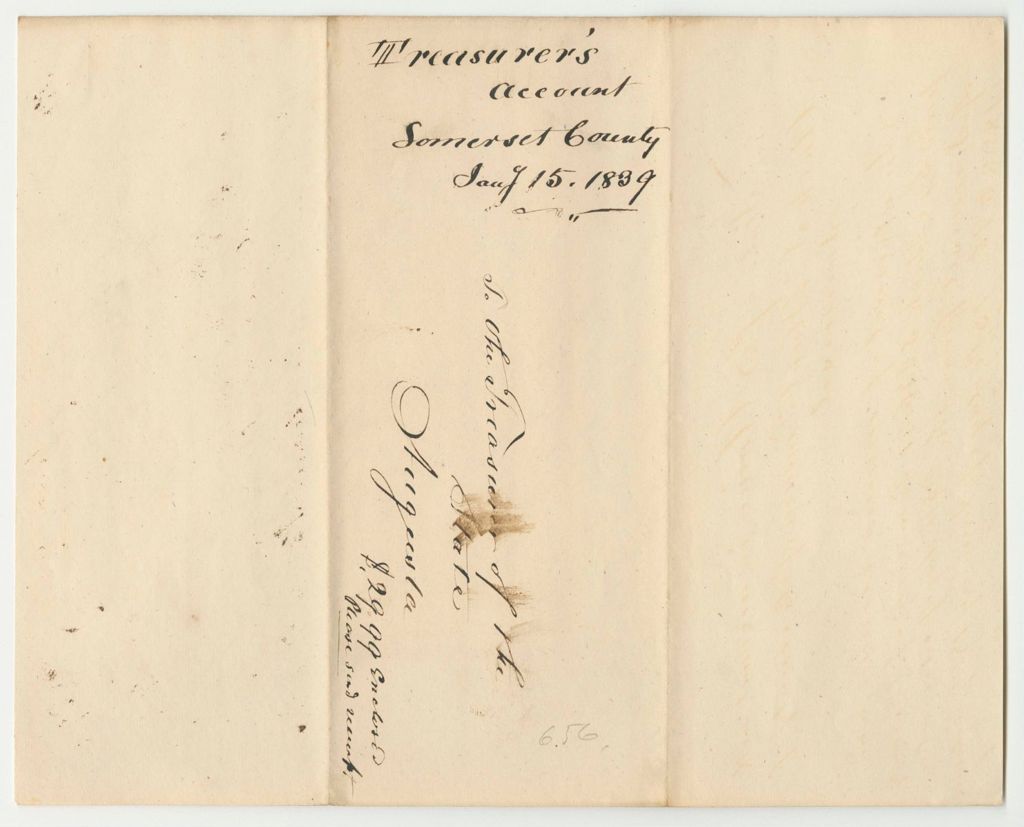 Treasurer's
Account
Somerset County
Jany 15. 1839
To The Treasurer of the
State
Augusta
$29.99 Enclosed
Please send receipt.
656